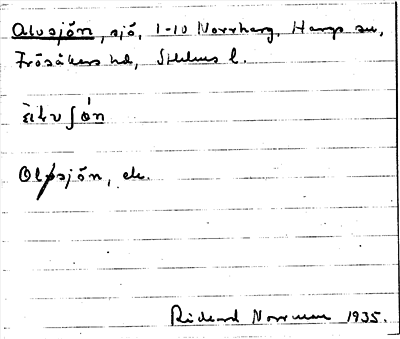 Alvsjön, sjö, 1-10 Norrharg, Hargs sn,
Frösåkers hd, Sthlms l.
Olpsjön, ek.
Rickard Norrman 1935.